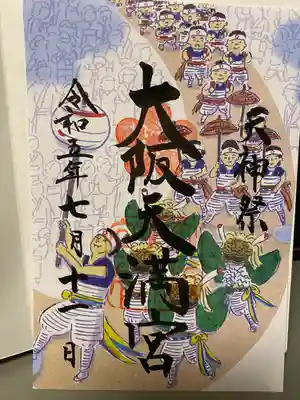 天神祭
大阪天満宮
令和五年七月十一日